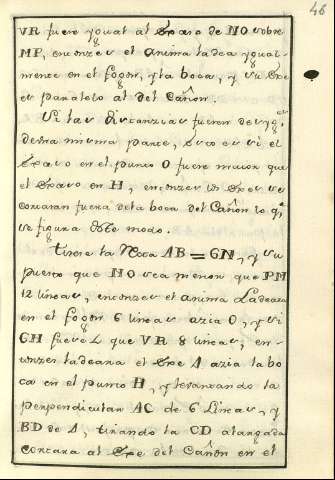 46
VR fuere ygual al Exaro de NO sobre
MP, enconzes el anima ladea ygual-
mente en el fogon, y la boca, y su Exe
es paralelo al del Cañon.
Si las distanzias fueren desyg.s
desta misma parte, esto es si el
Exaso en el punto O fuere maior que
el Exaso en H, enconzes los Exes se
cortaran fuera de la boca del Cañon lo q.e
se figura deste modo.
Tirese la Recta AB = GN, y su
puesto que NO sea menor que PM
12 lineas, enconzes el anima Ladeara
en el fogon 6 lineas azia O, y si
GH fuere L que VR 8 lineas, en-
conzes ladeara el Exe 4 azia la bo
ca en el punto H, y levantando la
perpendicular AC de 6 Lineas, y
BD de 4, tirando la CD alargada
cortara al Exe del Cañon en el